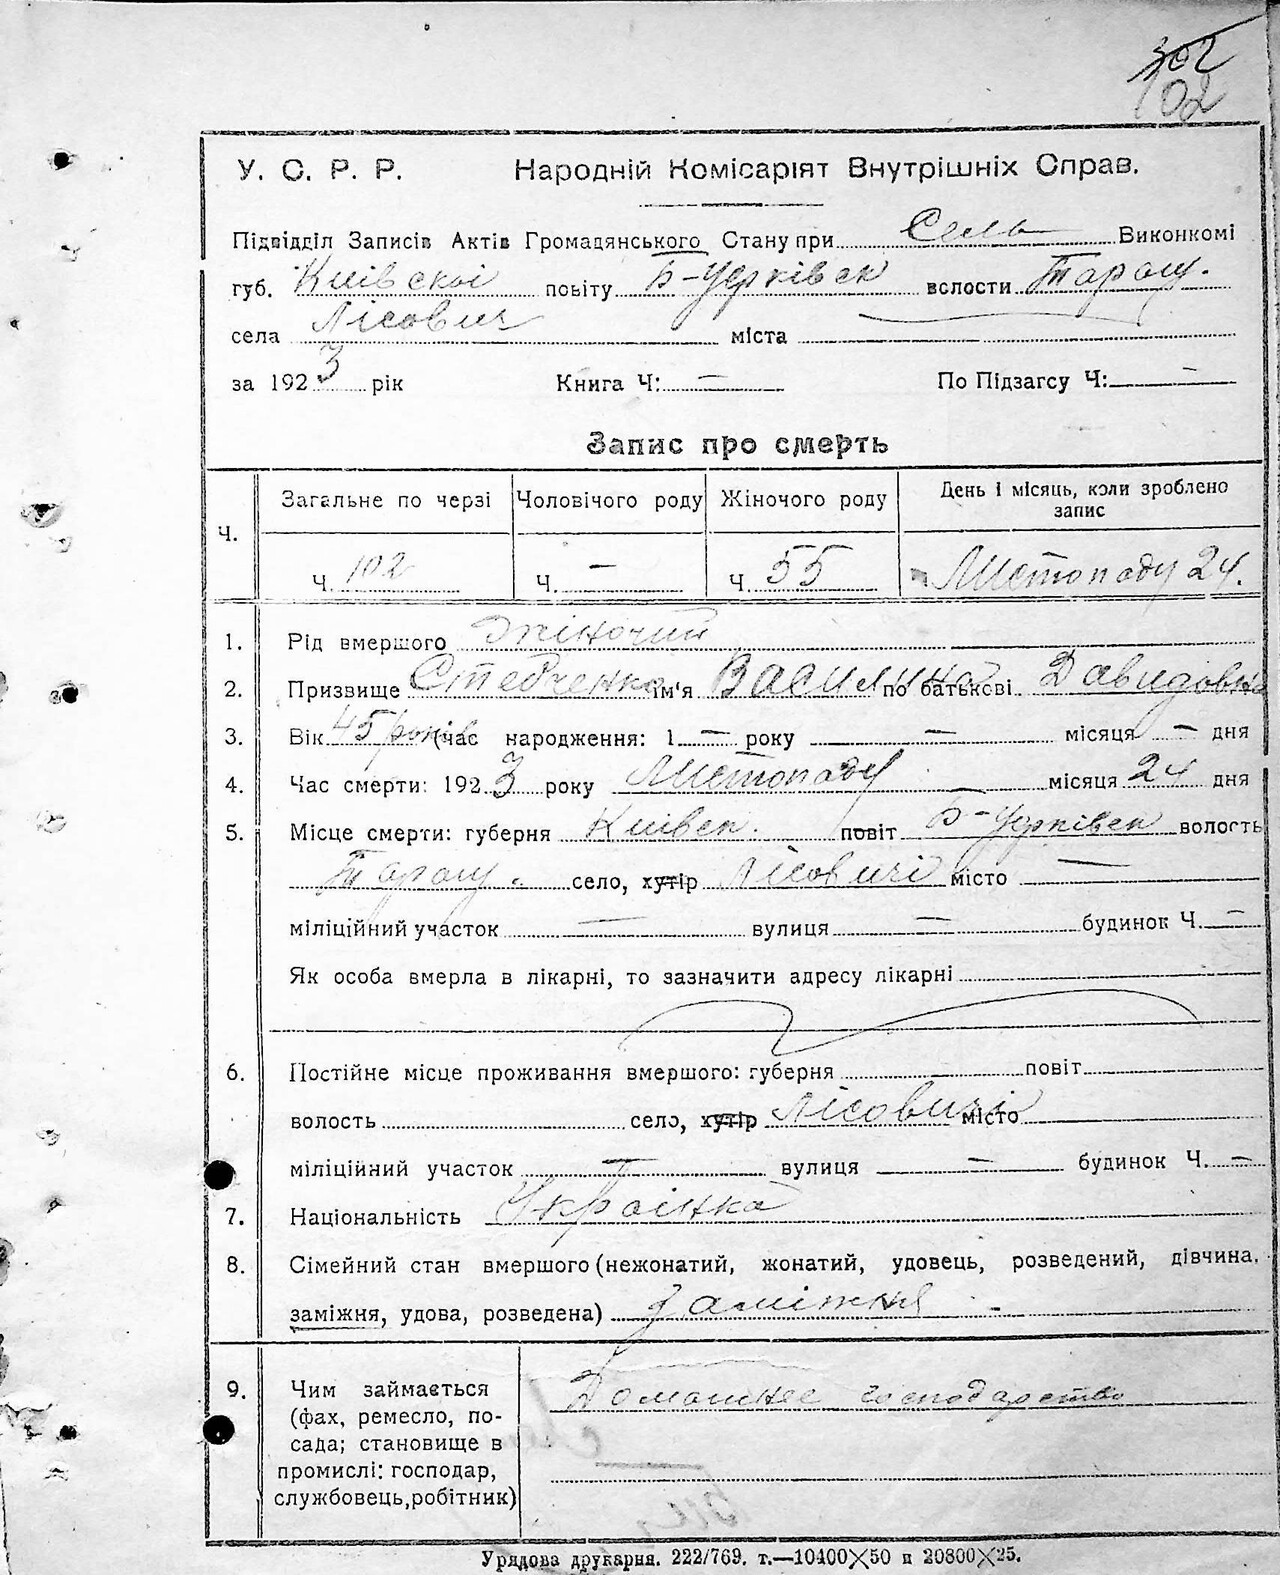 302
102
У. С. Р. Р. Народній Комісаріят Внутрішніх Справ.
Підвідділ Записів Актів Громадянського Стану при Сель Виконкомі
губ. Київскоі повіту Б-Церківск волости Таращ.
села Лісович міста
за 1923 рік Книга Ч: — По Підзагсу Ч: —
Запис про смерть
Ч. Загальне по черзі Чоловічого роду Жіночого роду День і місяць, коли зроблено
запис
Ч. 102 Ч. — Ч. 55 Листопаду 24.
1. Рід вмершого Жіночий
2. Призвище ім'я Василина по батькові Давидовна
3. Вік 45 років (час народження: 1 — року — місяця — дня
4. Час смерти: 1923 року Листопаду місяця 24 дня
5. Місце смерти: губерня Київск. повіт Б-Церківск волость
Таращ. село, хутір Лісовичі місто —
міліційний участок — вулиця — будинок Ч. —
Як особа вмерла в лікарні, то зазначити адресу лікарні
6. Постійне місце проживання вмершого: губерня повіт
волость село, хутір Лісовичі місто
міліційний участок — вулиця — будинок Ч. —
7. Національність Українка
8. Сімейний стан вмершого (нежонатий, жонатий, удовець, розведений, дівчина,
заміжня, удова, розведена) Заміжня —
9. Чим займається Домашнее господарство
(фах, ремесло, по-
сада; становище в
промислі: господар,
службовець, робітник)
Урядова друкарня. 222/769. т.—10400×50 и 20800×25.